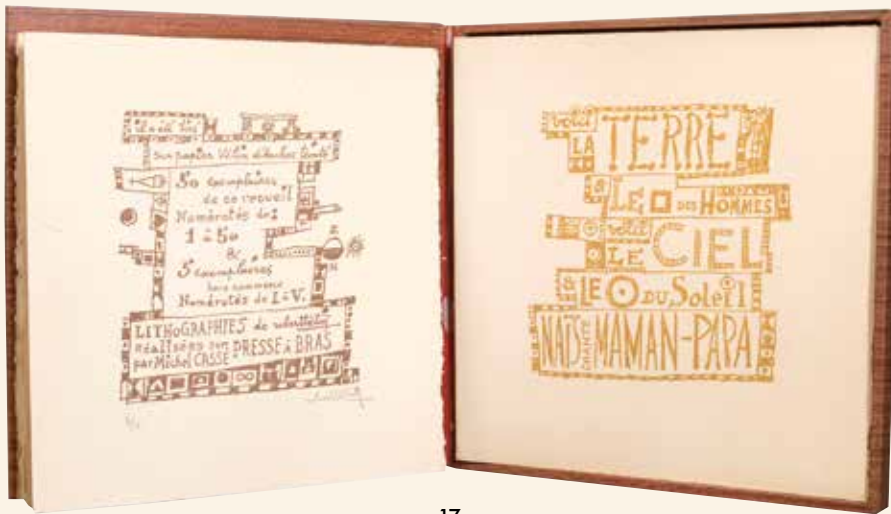 il a été tiré
sur papier Vélin d'Arches teinté
50 exemplaires
de ce recueil
Numérotés de:
1 à 50
&
5 exemplaires
hors commerce
Numérotés de I à V.
LITHOGRAPHIES de
Réalisées sur PRESSE à BRAS
par Michel CASSÉ
voici
LA TERRE
& LE DES HOMMES
voici
LE CIEL
& LE DU Soleil
NAÏS CHANTE MAMAN-PAPA
17